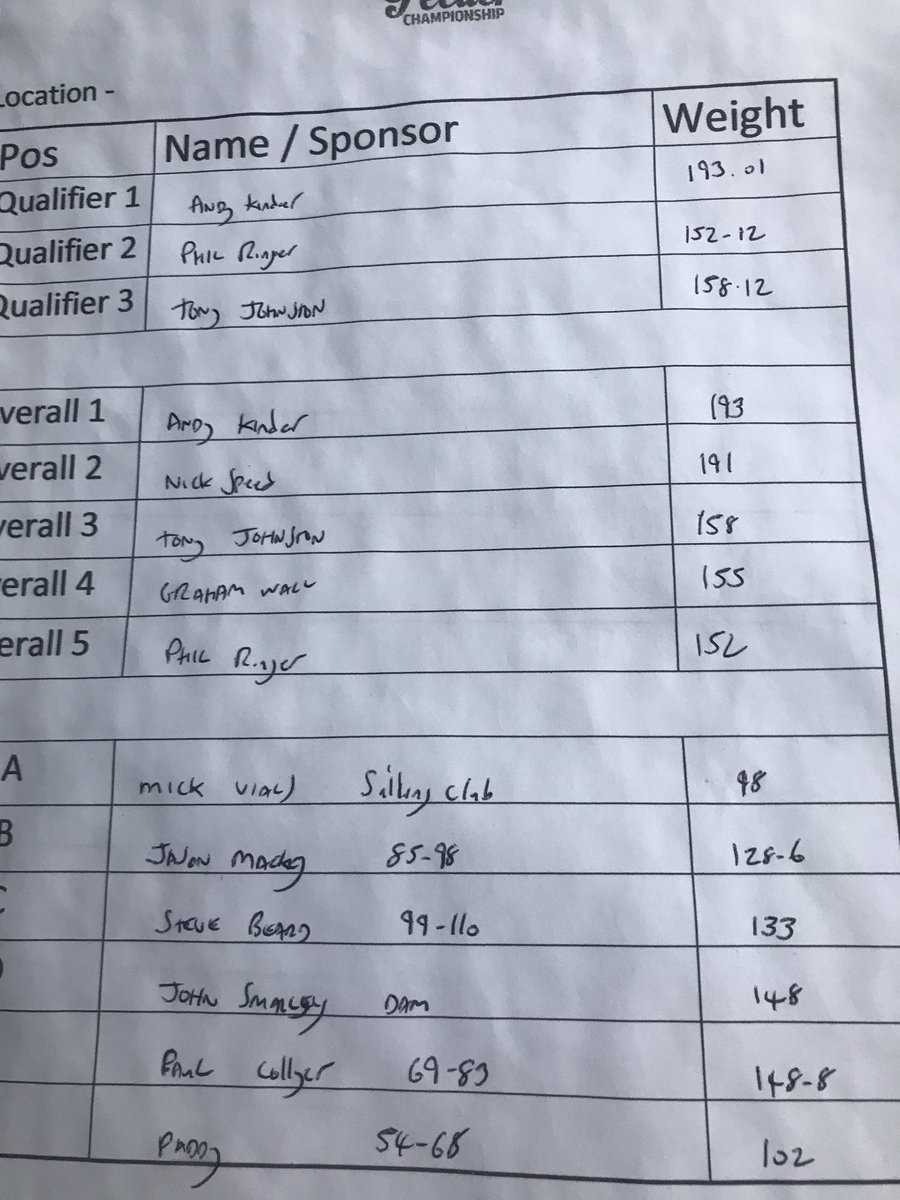 CHAMPIONSHIP
Location -
Pos Name / Sponsor Weight
Qualifier 1 Andy Kinder 193.01
Qualifier 2 PHIL Ringer 152-12
Qualifier 3 TONy JOHNSON 158.12
verall 1 ANDy Kinder 193
verall 2 NICK Speed 191
verall 3 TONy JOHNSON 158
erall 4 GRAHAM WALL 155
erall 5 PHIL Ringer 152
A MICK VIALS Sailing Club 98
B JASON Mackey 85-98 128-6
C STEVE BEARD 99-110 133
D JOHN SMALLEY DAM 148
PAUL Collyer 69-83 148-8
PADDy 54-68 102